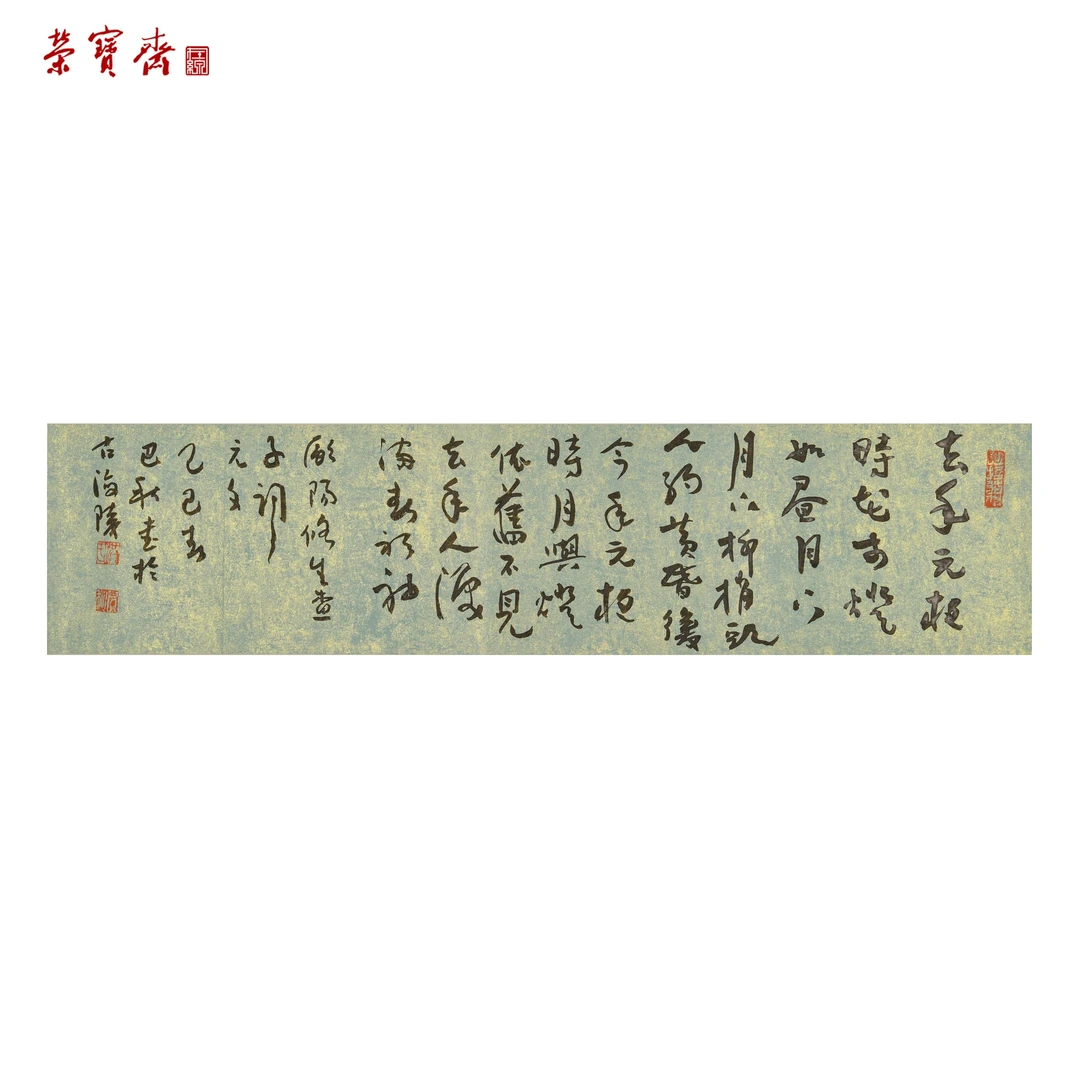 榮寶齋
去年元夜
時花市燈
如昼月上
月上柳梢頭
人約黃昏後
今年元夜
時月與燈
依舊不見
去年人淚
滿春衫袖
歐陽修生查
子詞
元夕
乙巳春
巴秋書於
古海陵